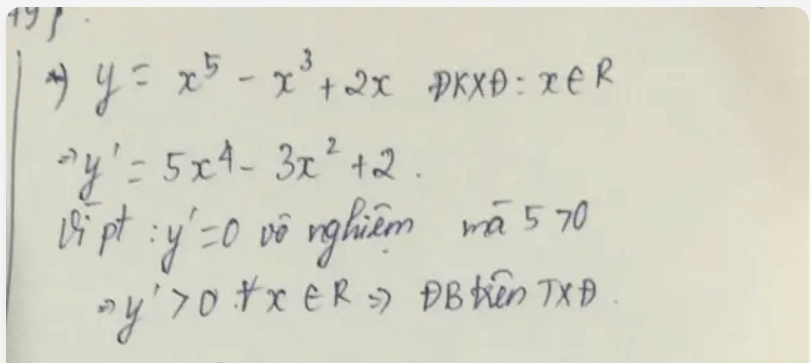 y = x⁵ - x³ + 2x ĐKXĐ: x ∈ R
⇒ y' = 5x⁴ - 3x² + 2.
Vì pt : y' = 0 vô nghiệm mà 5 > 0
⇒ y' > 0 ∀x ∈ R ⇒ ĐB trên TXĐ.